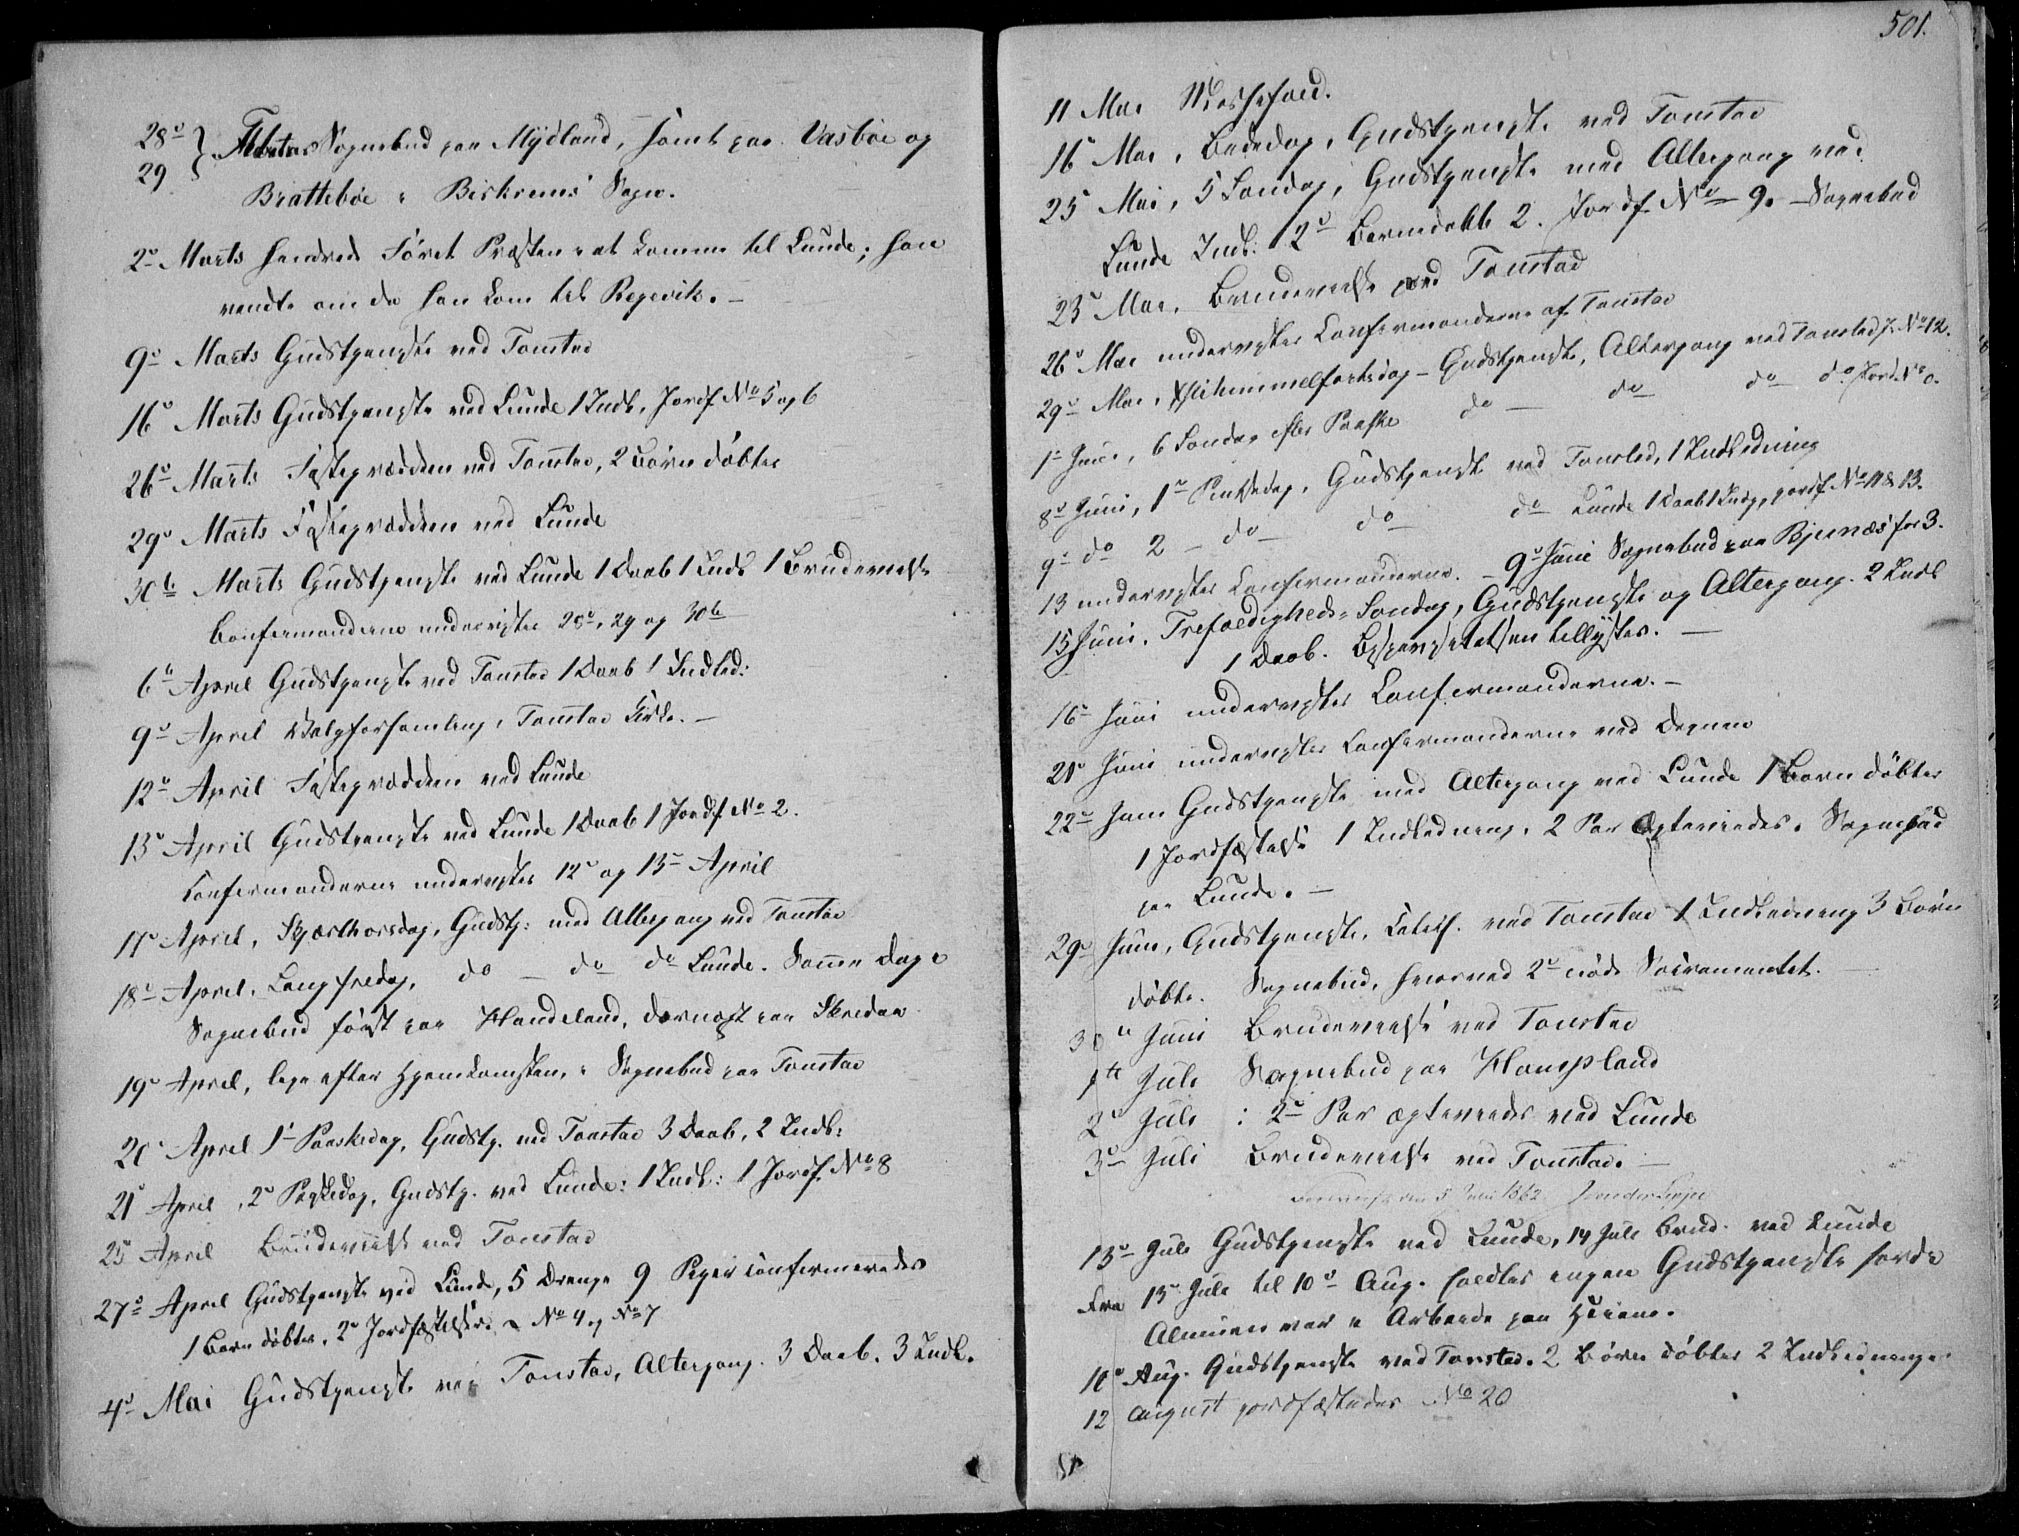 28de } Februar Sognebud paa Mydland, samt paa Vasbøe og
29
Brattebøe i Birkrems Sogn.
2de Marts hindrede Føret Præsten i at komme til Lunde; han
vendte om da han kom til Regevik. –
9de Marts Gudstjeneste ved Tonstad
16de Marts Gudstjeneste ved Lunde 1 Indl., Jordf. No 5 og 6
26de Marts Fasteprædiken ved Tonstad, 2 Børn døbtes
29de Marts Fasteprædiken ved Lunde
30te Marts Gudstjeneste ved Lunde 1 Daab 1 Indl 1 Brudevielse
Confirmanderne underviste 28de, 29 og 30te
6te April Gudstjeneste ved Tonstad 1 Daab 1 Indled:
9de April Valgforsamling i Tonstad Kirke. –
12te April Fasteprædiken ved Lunde
13de April Gudstjeneste ved Lunde 1 Daab 1 Jordf. No 2.
Confirmanderne undervistes 12te og 13de April
17de April, Skjærthorsdag, Gudstj: med Altergang ved Tonstad
18de April, Langfredag, do – do do Lunde. Samme Dag i
Sognebud først paa Handeland, dernæst paa Skredaa
19de April, lige efter Hjemkomsten, i Sognebud paa Tonstad
20de April 1ste Paaskedag, Gudstj. ved Tonstad 3 Daab, 2 Indl:
21de April, 2de Paaskedag, Gudstj. ved Lunde: 1 Indl: 1 Jordf. No 8
25de April Brudevielse ved Tonstad
27de April Gudstjeneste ved Lunde, 5 Drenge 9 Piger confirmeredes
1 Barn døbtes, 2de Jordfæstelser. No 4 og No 7
4de Mai Gudstjeneste ved Tonstad, Altergang. 3 Daab. 3 Indl.
501.
11 Mai Messefald.
16de Mai, Bededag, Gudstjeneste ved Tonstad
25 Mai, 5 Søndag, Gudstjeneste med Altergang ved
Lunde Indl: 2de Barnedaab 2. Jordf. No 9. – Sognebud
23de Mai. Brudevielse ved Tonstad
26de Mai undervistes Confirmanderne af Tonstad
29de Mai, Chr: himmelfartsdag – Gudstjeneste, Altergang ved Tonstad J. No 12.
1ste Juni, 6 Søndag efter Paaske do – do do do Jord. No
8de Juni, 1ste Pintsedag, Gudstjeneste ved Tonstad, 1 Indledning
9de do 2 – do do do Lunde 1 Daab 1 Indl, jordf. No 11 & 13.
13 undervistes Confirmanderne. – 9de Juni Sognebud paa Bjunæs for 3.
15 Juni, Trefoldigheds-Søndag, Gudstjeneste og Altergang. 2 Indl
1 Daab. Bispevisitatsen tillystes. –
16de Juni undervistes Confirmanderne. –
21de Juni undervistes Confirmanderne ved Degnen
22de Juni Gudstjeneste med Altergang ved Lunde 1 Barn døbtes
1 Jordfæstelse 1 Indledning, 2 Par Ægteviedes. Sognebud
paa Lunde. –
29de Juni, Gudstjeneste, Catech. ved Tonstad 1 Indledning 3 Børn
døbte. Sognebud, hvorved 2de nøde Sacramentet.
30te Juni Brudevielse ved Tonstad
1ste Juli Sognebud paa
2de Juli : 2de Par ægteviede ved Lunde
3de Juli Brudevielse ved Tonstad. –
5 Juli 1862
13de Juli Gudstjeneste ved Lunde, 14 Juli Brud. ved Lunde
Fra 13de Juli til 10de Aug. holdtes ingen Gudstjeneste fordi
Almuen var i Arbeide paa Heiene.
10de Aug. Gudstjeneste ved Tonstad. 2 Børn døbtes 2 Indledninger
12 August jordfæstedes No 20